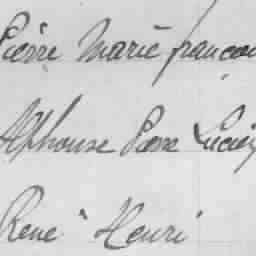 Pierre Marie françois
Alphonse Pierre Lucien
René Henri